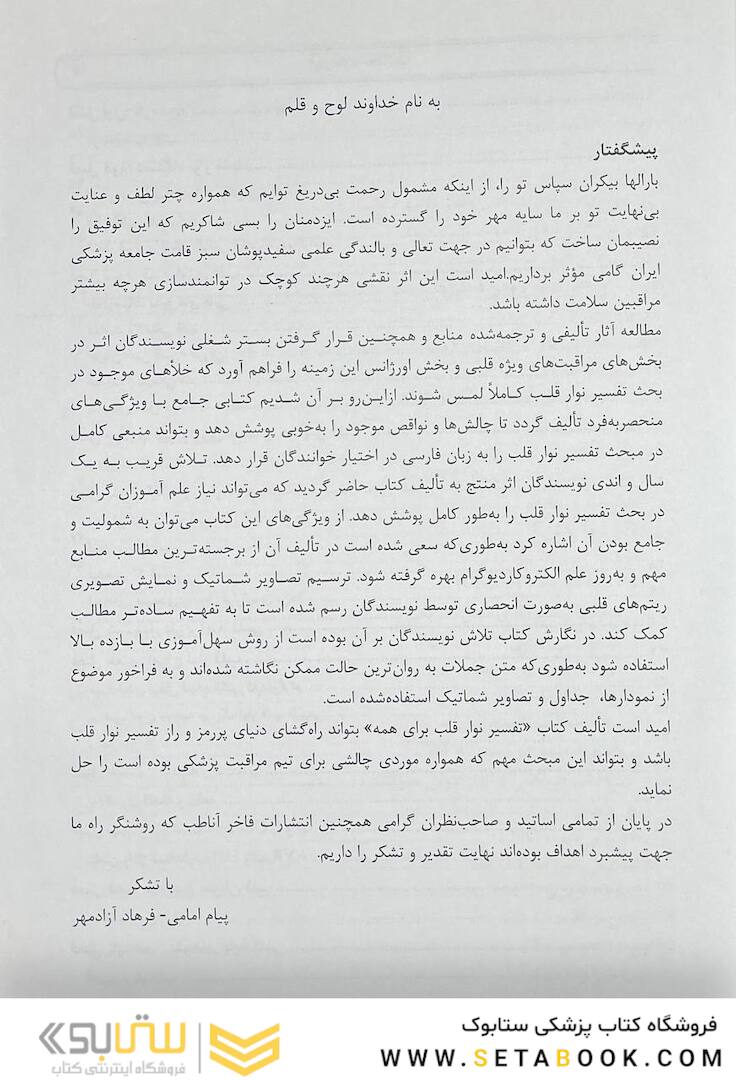 به نام خداوند لوح و قلم
پیشگفتار
بارالها بیکران سپاس تو را، از اینکه مشمول رحمت بی‌دریغ توایم که همواره چتر لطف و عنایت
بی‌نهایت تو بر ما سایه مهر خود را گسترده است. ایزدمنان را بسی شاکریم که این توفیق را
نصیبمان ساخت که بتوانیم در جهت تعالی و بالندگی علمی سفیدپوشان سبز قامت جامعه پزشکی
ایران گامی مؤثر برداریم.امید است این اثر نقشی هرچند کوچک در توانمندسازی هرچه بیشتر
مراقبین سلامت داشته باشد.
مطالعه آثار تألیفی و ترجمه‌شده منابع و همچنین قرار گرفتن بستر شغلی نویسندگان اثر در
بخش‌های مراقبت‌های ویژه قلبی و بخش اورژانس این زمینه را فراهم آورد که خلأهای موجود در
بحث تفسیر نوار قلب کاملاً لمس شوند. ازاین‌رو بر آن شدیم کتابی جامع با ویژگی‌های
منحصربه‌فرد تألیف گردد تا چالش‌ها و نواقص موجود را به‌خوبی پوشش دهد و بتواند منبعی کامل
در مبحث تفسیر نوار قلب را به زبان فارسی در اختیار خوانندگان قرار دهد. تلاش قریب به یک
سال و اندی نویسندگان اثر منتج به تألیف کتاب حاضر گردید که می‌تواند نیاز علم آموزان گرامی
در بحث تفسیر نوار قلب را به‌طور کامل پوشش دهد. از ویژگی‌های این کتاب می‌توان به شمولیت و
جامع بودن آن اشاره کرد به‌طوری‌که سعی شده است در تألیف آن از برجسته‌ترین مطالب منابع
مهم و به‌روز علم الکتروکاردیوگرام بهره گرفته شود. ترسیم تصاویر شماتیک و نمایش تصویری
ریتم‌های قلبی به‌صورت انحصاری توسط نویسندگان رسم شده است تا به تفهیم ساده‌تر مطالب
کمک کند. در نگارش کتاب تلاش نویسندگان بر آن بوده است از روش سهل‌آموزی با بازده بالا
استفاده شود به‌طوری‌که متن جملات به روان‌ترین حالت ممکن نگاشته شده‌اند و به فراخور موضوع
از نمودارها، جداول و تصاویر شماتیک استفاده‌شده است.
امید است تألیف کتاب «تفسیر نوار قلب برای همه» بتواند راه‌گشای دنیای پررمز و راز تفسیر نوار قلب
باشد و بتواند این مبحث مهم که همواره موردی چالشی برای تیم مراقبت پزشکی بوده است را حل
نماید.
در پایان از تمامی اساتید و صاحب‌نظران گرامی همچنین انتشارات فاخر آناطب که روشنگر راه ما
جهت پیشبرد اهداف بوده‌اند نهایت تقدیر و تشکر را داریم.
با تشکر
پیام امامی- فرهاد آزادمهر
فروشگاه کتاب پزشکی ستابوک
WWW.SETABOOK.COM
ستابوک
فروشگاه اینترنتی کتاب